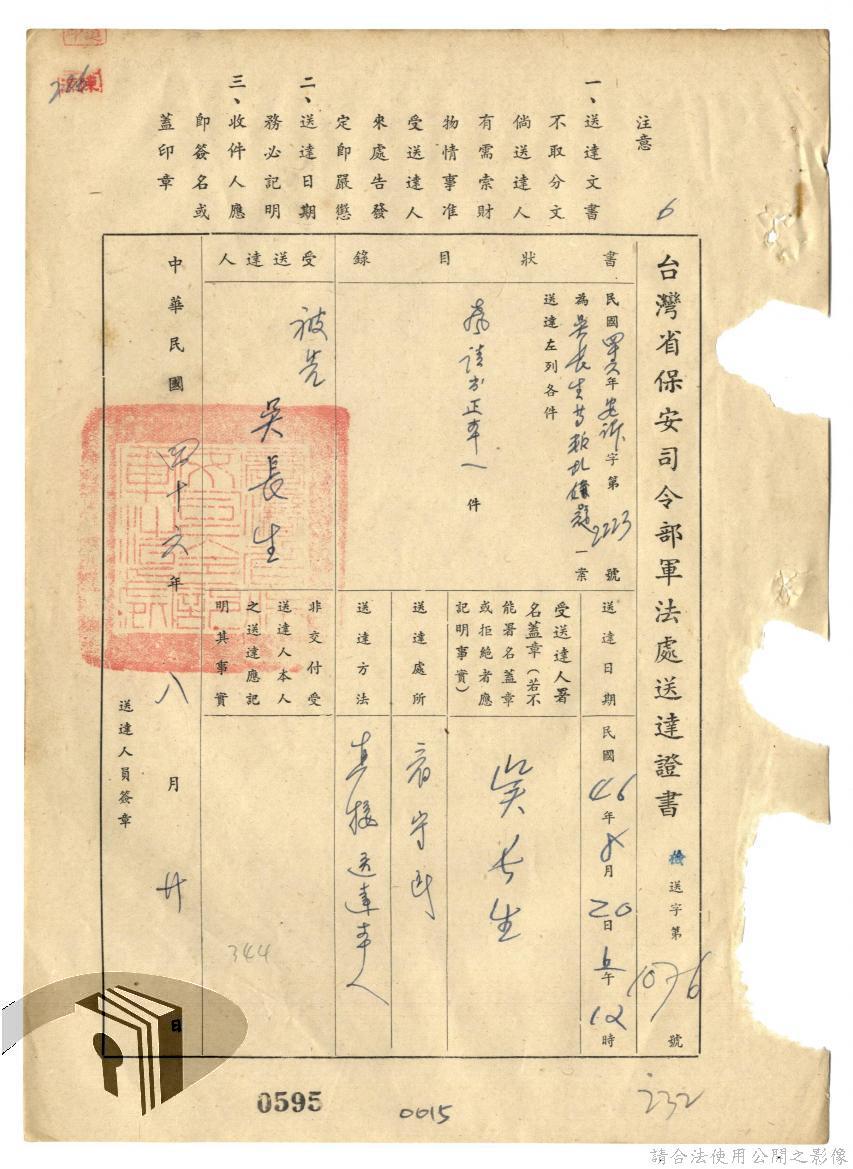 注意
一、送達文書
不取分文
倘送達人
有需索財
物情事准
受送達人
來處告發
定即嚴懲
二、送達日期
務必記明
三、收件人應
即簽名或
蓋印章
6
台灣省保安司令部軍法處送達證書
送字第 號
書狀目錄
民國 年 字第2223號
為吳長生等叛亂 一案
送達左列各件
正本一件
受送達人
被告 吳長生
送達日期
民國46年8月20日 午12時
受送達人署
名蓋章(若不
能署名蓋章
或拒絕者應
記明事實)
吳長生
送達處所
看守所
送達方法
直接送達本人
非交付受
送達人本人
之送達應記
明其事實
中華民國四十六年八月廿日
送達人員簽章
344
0595
0015
232
請合法使用公開之影像